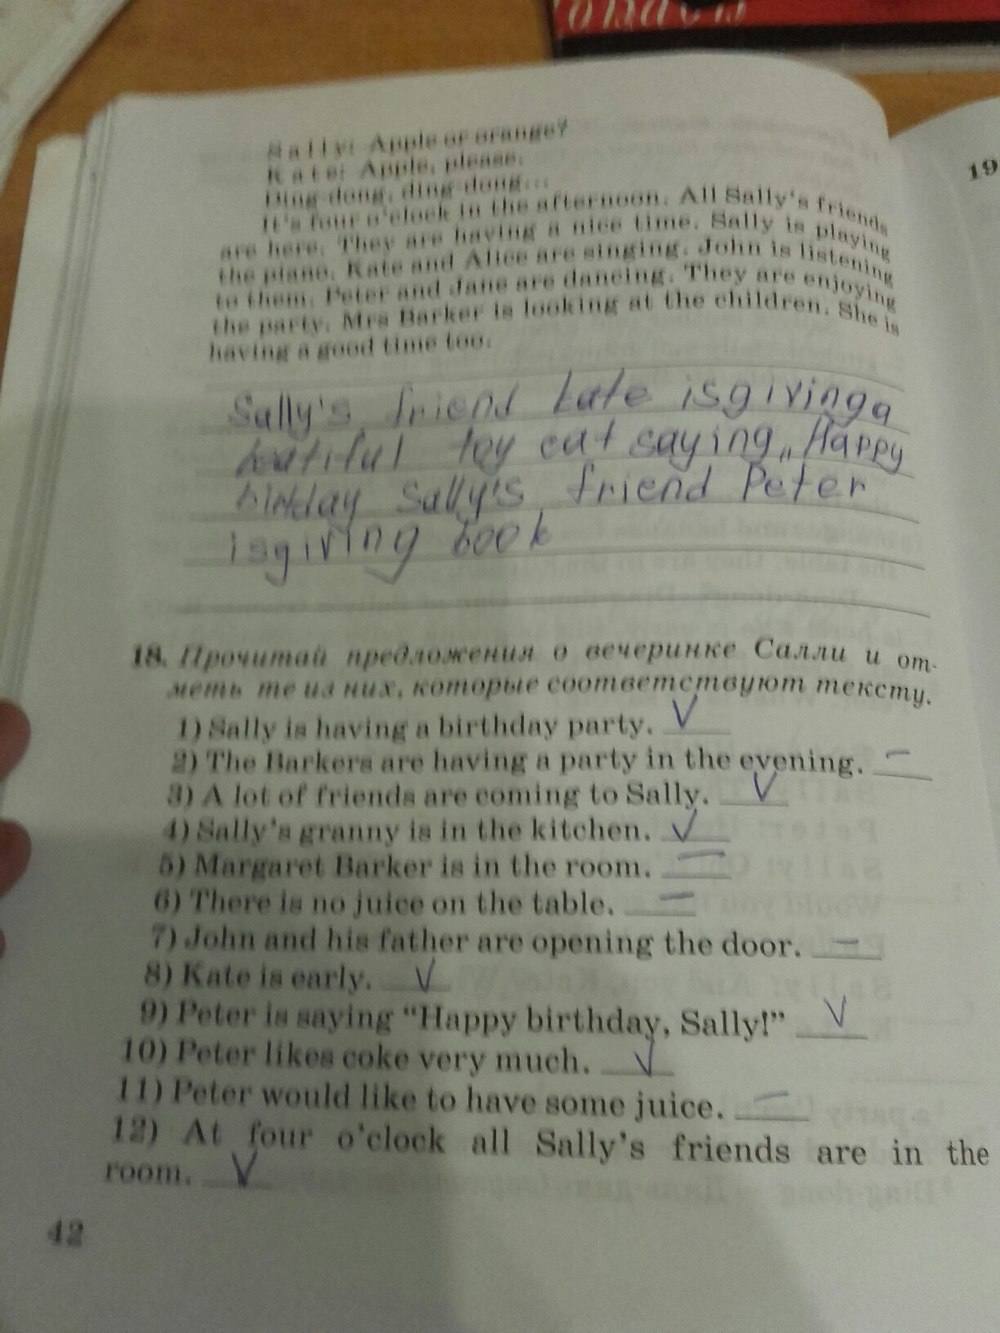 Sally: Apple or orange?
Kate: Apple, please.
Ding-dong, ding-dong...
It's four o'clock in the afternoon. All Sally's friends
are here. They are having a nice time. Sally is playing
the piano. Kate and Alice are singing. John is listening
to them. Peter and Jane are dancing. They are enjoying
the party. Mrs Barker is looking at the children. She is
having a good time too.
Sally's friend Kate is giving a
beatiful toy cat saying „Happy
birthday Sally's friend Peter
is giving book
18. Прочитай предложения о вечеринке Салли и от-
меть те из них, которые соответствуют тексту.
1) Sally is having a birthday party. V
2) The Barkers are having a party in the evening. –
3) A lot of friends are coming to Sally. V
4) Sally's granny is in the kitchen. V
5) Margaret Barker is in the room. –
6) There is no juice on the table. –
7) John and his father are opening the door. –
8) Kate is early. V
9) Peter is saying “Happy birthday, Sally!” V
10) Peter likes coke very much. V
11) Peter would like to have some juice. –
12) At four o'clock all Sally's friends are in the
room. V
42
19